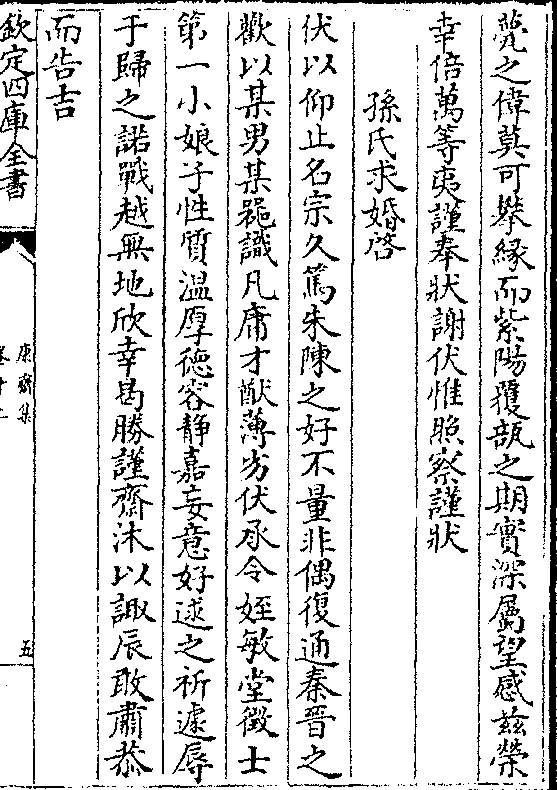 甍之偉莫可攀縁而紫陽覆瓿之期實深屬望感兹榮
幸倍萬等夷謹奉狀謝伏惟照察謹狀
孫氏求婚啓
伏以仰止名宗久篤朱陳之好不量非偶復通秦晉之
歡以某男某器識凡庸才猷薄劣伏承令姪敏堂徵士
第一小娘子性質溫厚德容静嘉妄意好逑之祈遽辱
于歸之諾戰越無地欣幸曷勝謹齋沐以諏辰敢肅恭
而告吉
欽定四庫全書
康齋集
五